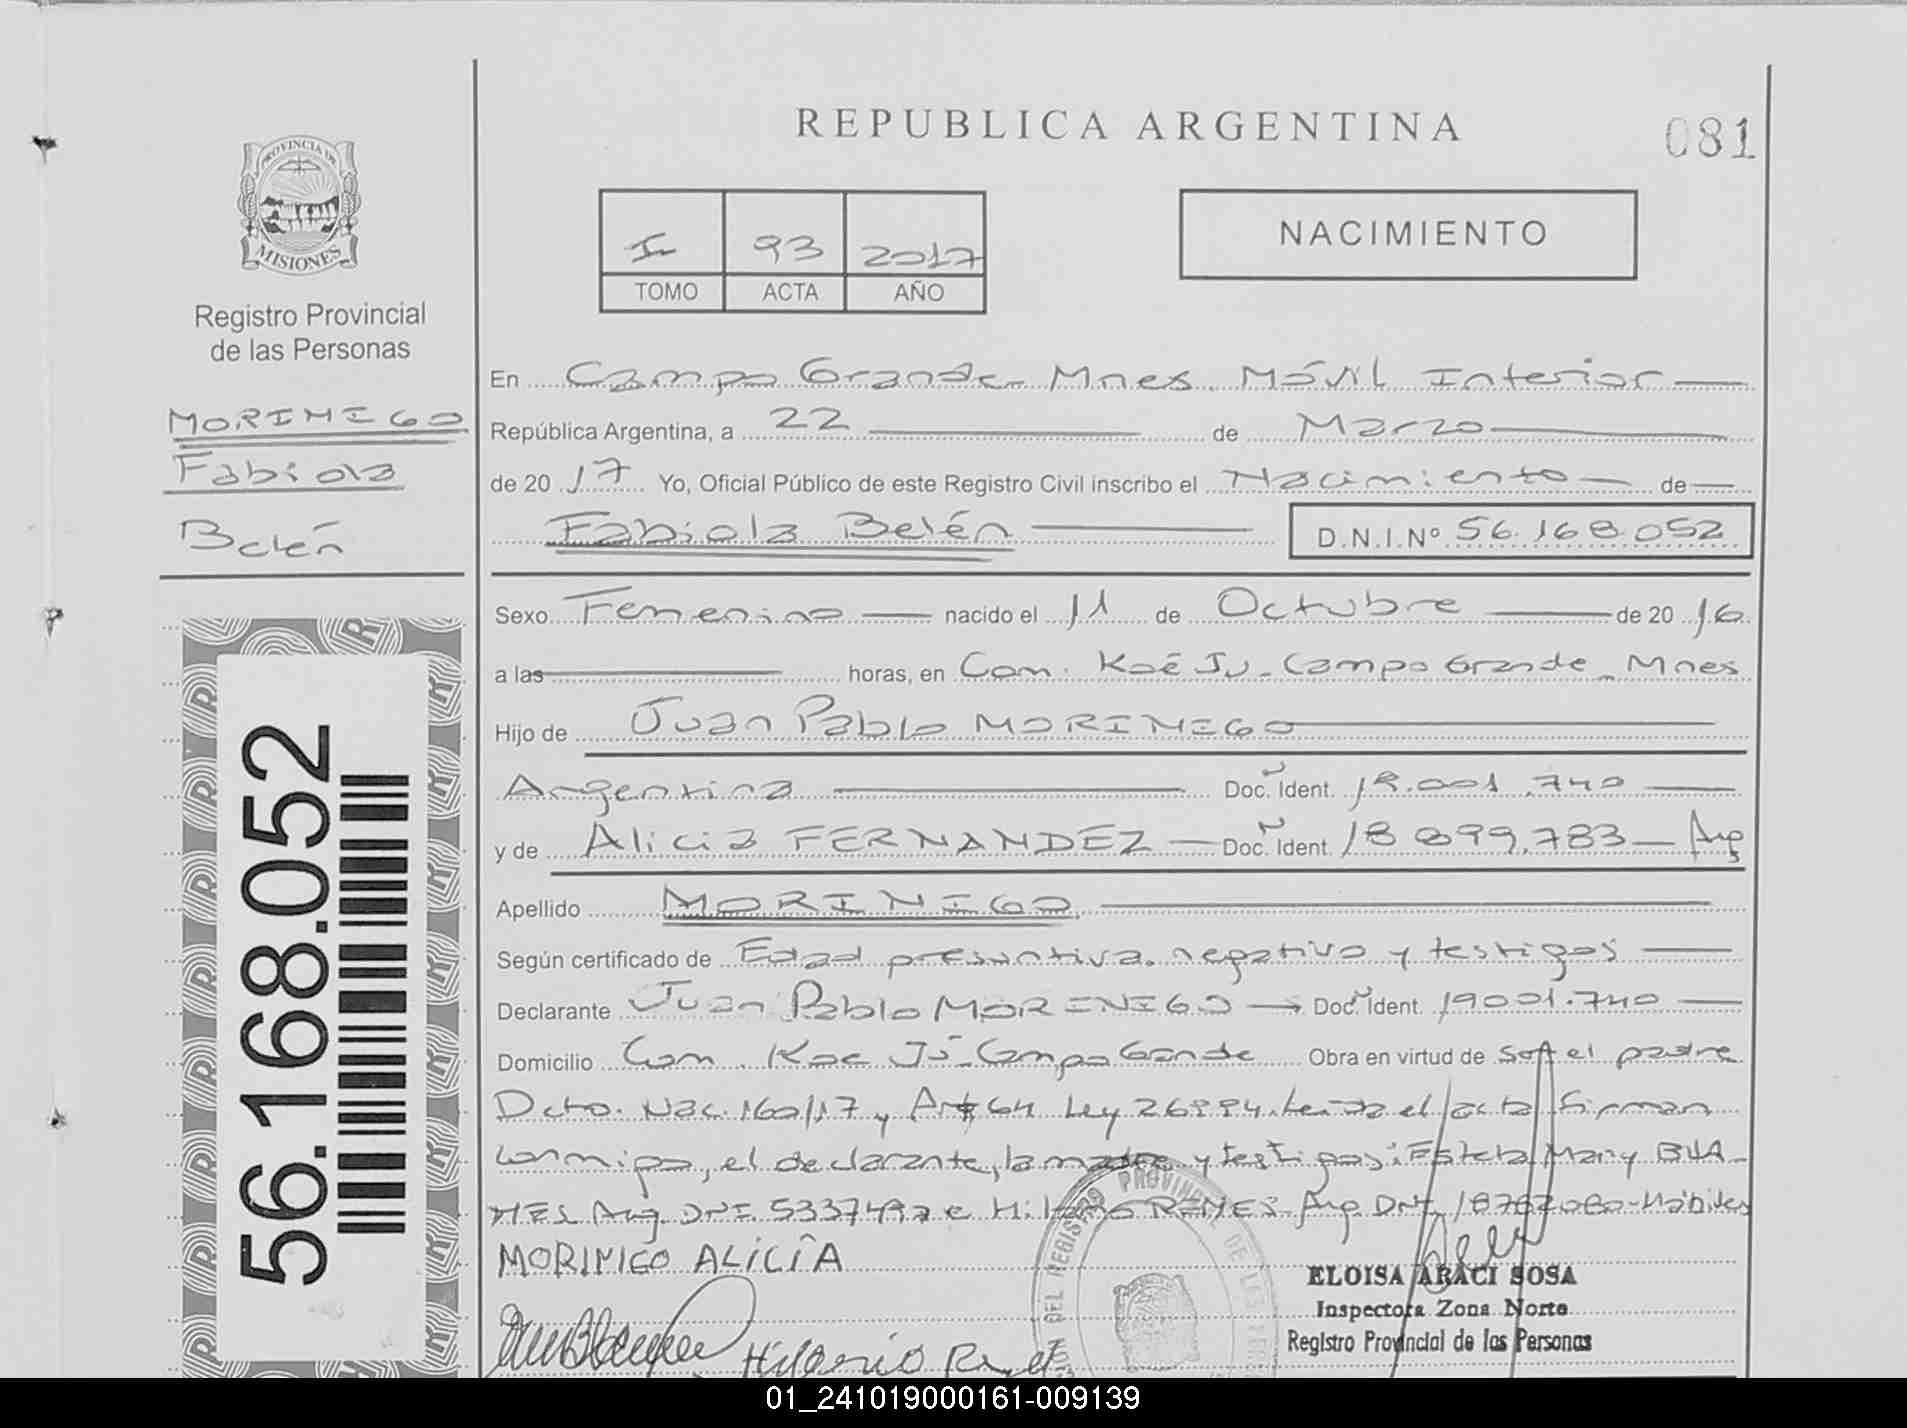 REPUBLICA ARGENTINA
081
PROVINCIA DE
MISIONES
Registro Provincial
de las Personas
MORINIGO
Fabiola
Belén
56.168.052
I 93 2017
TOMO ACTA AÑO
NACIMIENTO
En Campo Grande - Mnes. Móvil Interior
República Argentina, a 22 de Marzo
de 20 17 Yo, Oficial Público de este Registro Civil inscribo el Nacimiento de
Fabiola Belén D.N.I.Nº 56.168.052
Sexo Femenino nacido el 11 de Octubre de 20 16
a las horas, en Com. Kaé Ju - Campo Grande - Mnes
Hijo de Juan Pablo MORINIGO
Argentina Doc. Ident. 19.001.740
y de Alicia FERNANDEZ Doc. Ident. 18 899.783 - Arg
Apellido MORINIGO
Según certificado de Edad presuntiva. negativo y testigos
Declarante Juan Pablo MORINIGO Doc. Ident. 19001.740
Domicilio Com. Kae Jú - Campo Grande Obra en virtud de el padre
Dcto. Nac. 160/17 y Art 64 Ley 26994. Leída el acta firman
conmigo, el declarante, la madre y testigos: Estela Mary
Arg. DNI. 5337497 e Arg DNI Hábiles
MORINIGO ALICIA
ELOISA ARACI SOSA
Inspectora Zona Norte
Registro Provincial de las Personas
01_241019000161-009139